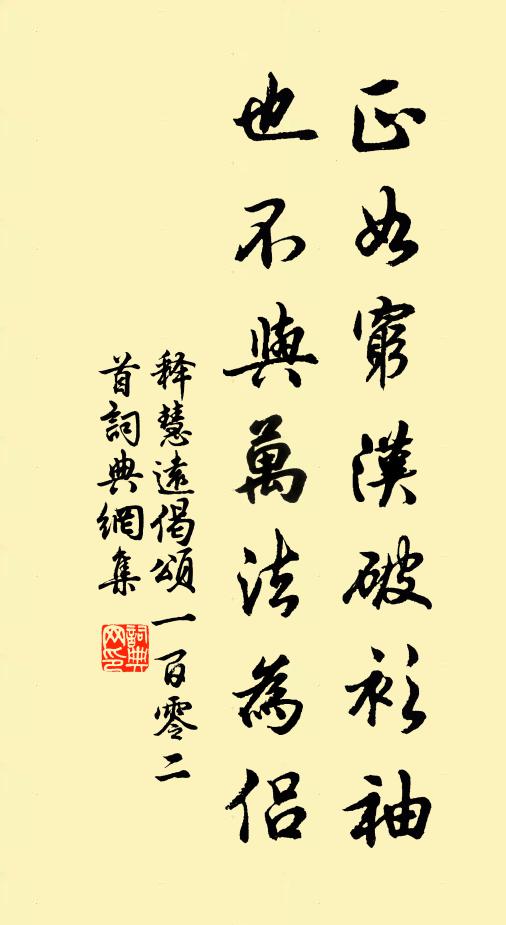 正如窮漢破衫袖
也不與萬法為侶
释慧遠偈頌一百零二
首詞典網集
詞典
网印